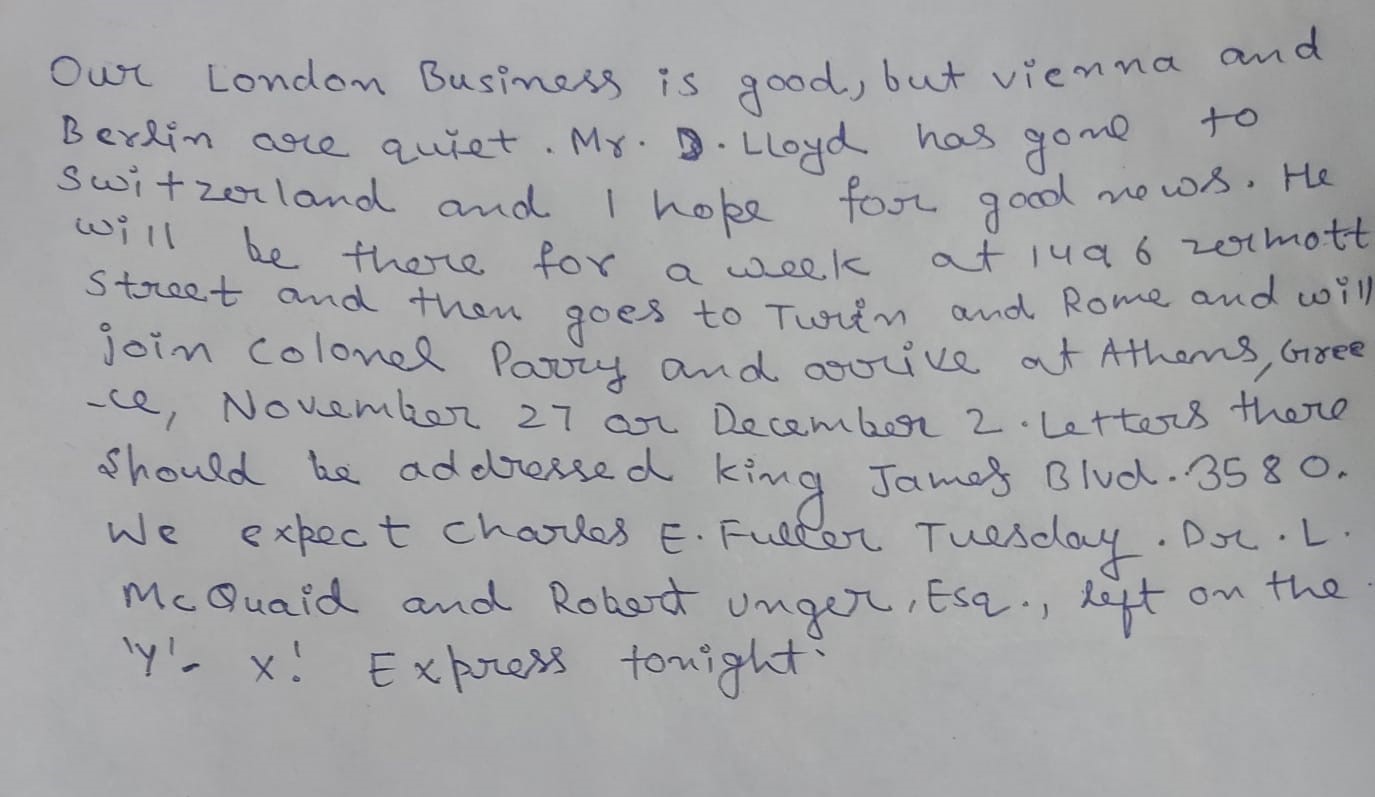 Our London Business is good, but vienna and
Berlin are quiet. Mr. D. Lloyd has gone to
Switzerland and I hope for good news. He
will be there for a week at 1496 zermott
Street and then goes to Turin and Rome and will
join Colonel Parry and arrive at Athens, Gree
-ce, November 27 or December 2. Letters there
Should be addressed King James Blvd. 3580.
We expect Charles E. Fuller Tuesday. Dr. L.
McQuaid and Robert Unger, Esq., left on the
'Y'- X! Express tonight.